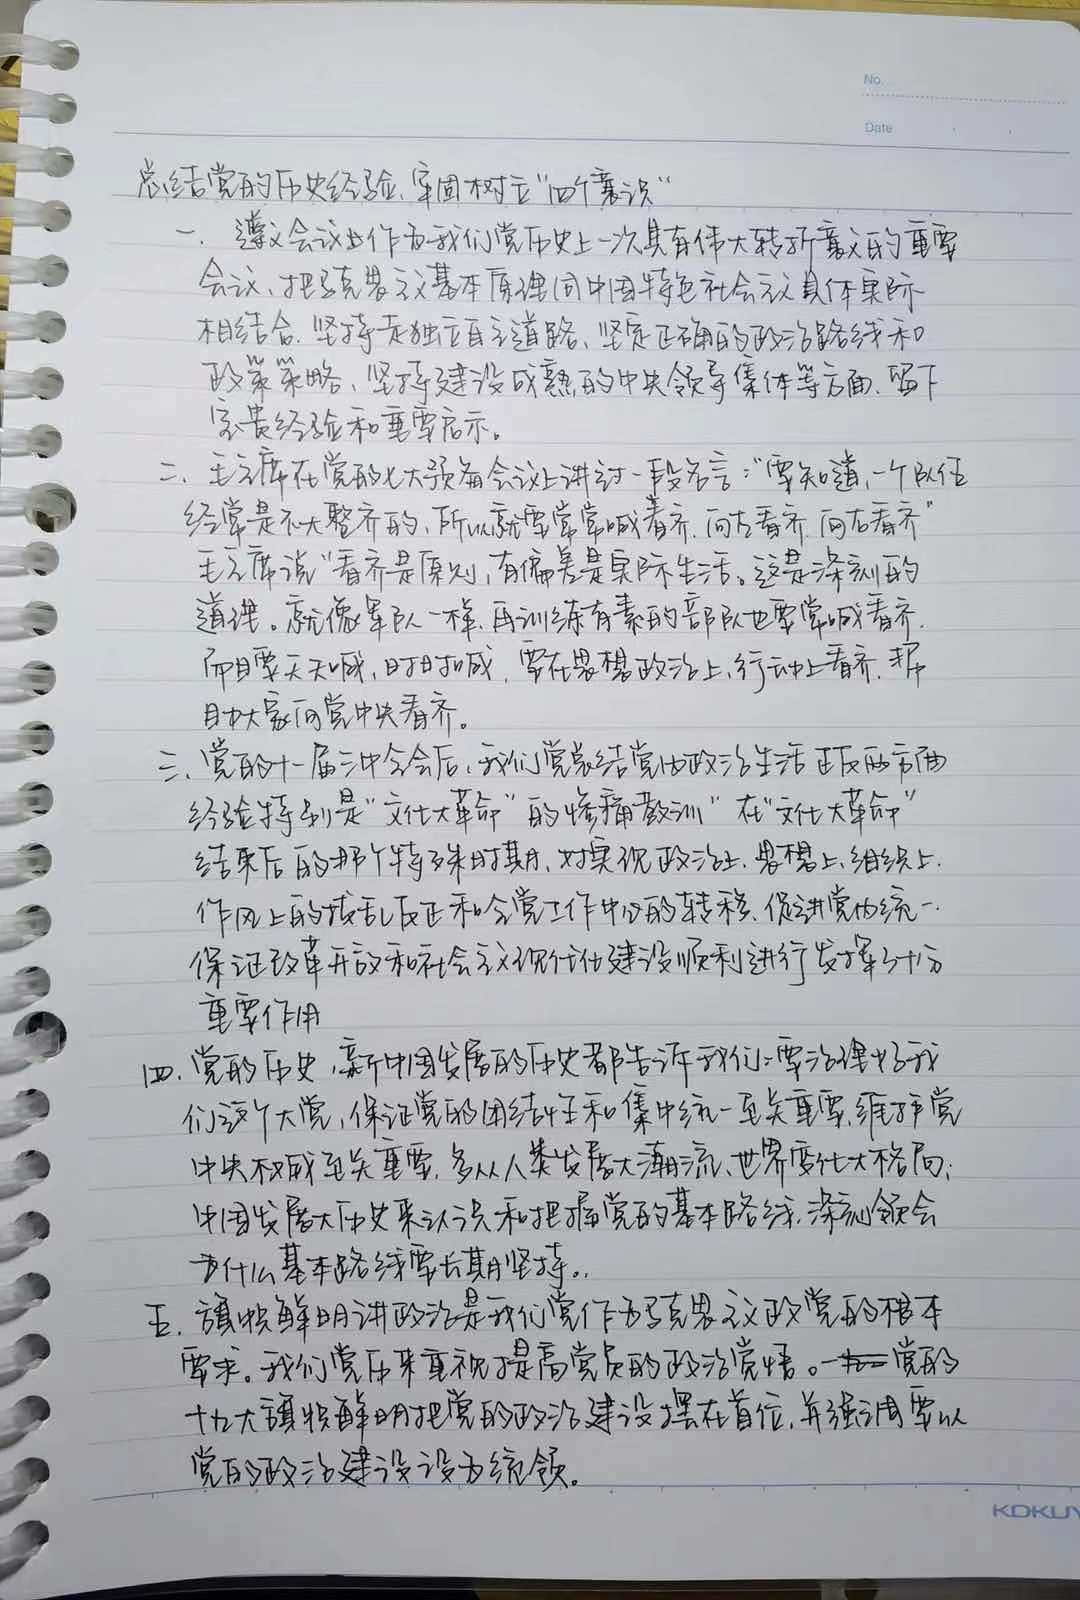 No.
Date
总结党的历史经验、牢固树立"四个意识"
一、遵义会议作为我们党历史上一次具有伟大转折意义的重要
会议、把马克思主义基本原理同中国特色社会主义具体实际
相结合、坚持走独立自主道路、坚定正确的政治路线和
政策策略、坚持建设成熟的中央领导集体等方面、留下
宝贵经验和重要启示。
二、毛主席在党的七大预备会议上讲过一段名言:"要知道,一个队伍
经常是不大整齐的,所以就要常常喊看齐、向左看齐、向右看齐"
毛主席说"看齐是原则,有偏差是实际生活。这是深刻的
道理。就像军队一样、再训练有素的部队也要常喊看齐、
而且要天天喊,时时喊,要在思想政治上、行动上看齐、帮
助大家向党中央看齐。
三、党的十一届三中全会后,我们党总结党内政治生活正反两方面
经验特别是"文化大革命"的惨痛教训"在"文化大革命"
结束后的那个特殊时期、对实现政治上、思想上、组织上、
作风上的拨乱反正和全党工作中心的转移、促进党的统一、
保证改革开放和社会主义现代化建设顺利进行发挥了十分
重要作用
四、党的历史,新中国发展的历史都告诉我们:要治理好我
们这个大党,保证党的团结性和集中统一至关重要,维护党
中央权威至关重要,多从人类发展大潮流、世界变化大格局;
中国发展大历史来认识和把握党的基本路线、深刻领会
为什么基本路线要长期坚持。
五、旗帜鲜明讲政治是我们党作为马克思主义政党的根本
要求。我们党历来重视提高党员的政治觉悟。党的
十九大旗帜鲜明把党的政治建设摆在首位,并强调要以
党的政治建设设为统领。
KOKUY